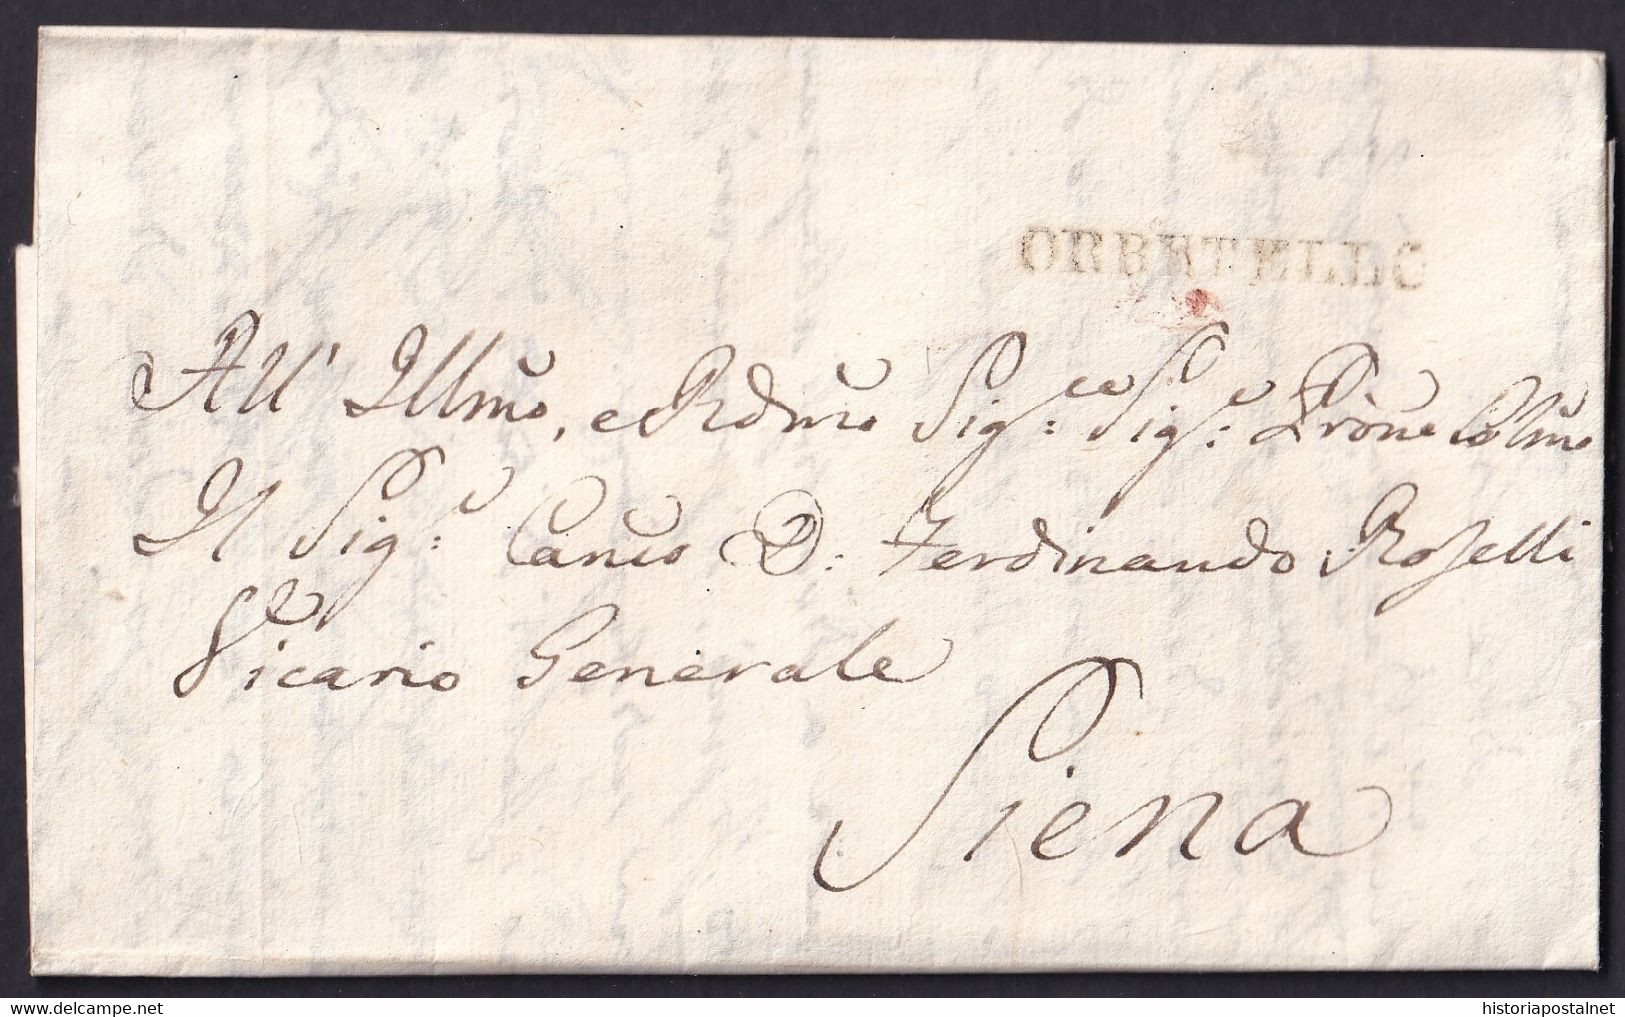 ORBETELLO
All' Illmo, e Rdmo Sig:re Sig:e Prône Colmo
Il Sig:e Canco D: Ferdinando Roselli
Vicario Generale
Siena
historiapostalnet